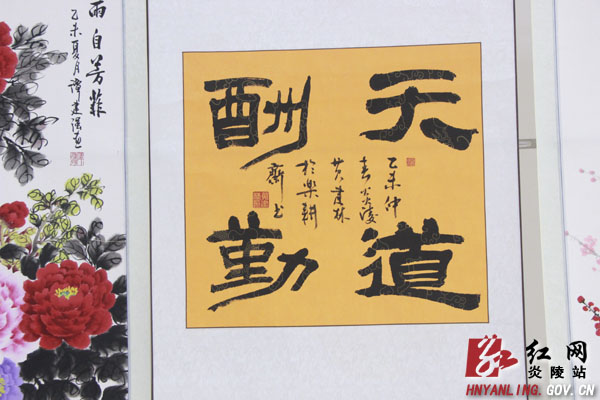 雨自芳菲
乙未夏月譚建强画
天道
酬勤
乙未仲
春炎陵
黄建林
於樂耕
齋书
红网
炎陵站
HNYANLING.GOV.CN